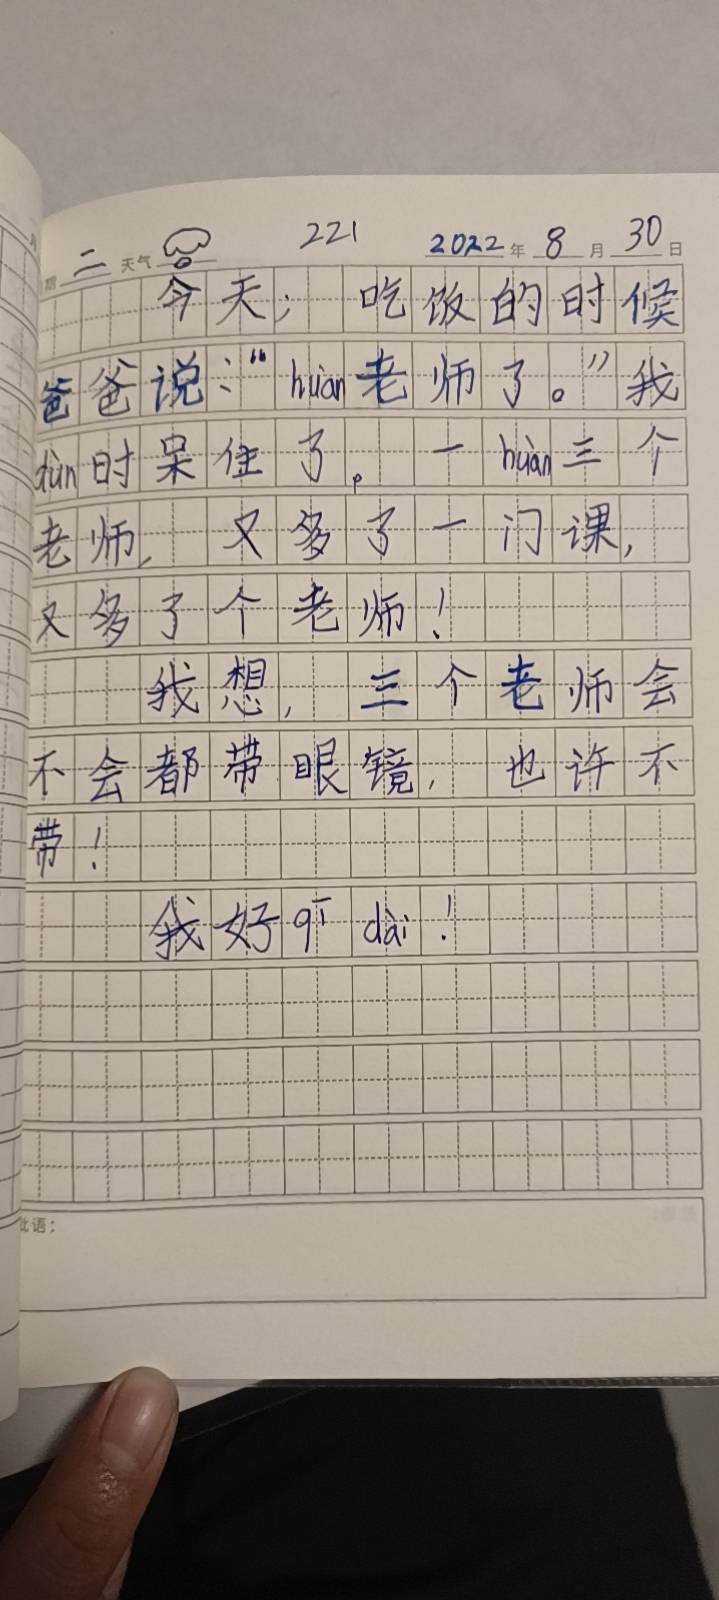 期 二 天气 221 2022年 8月 30日
今天, 吃饭的时候
爸爸说:“huàn老师了。”我
dùn时呆住了。一huàn三个
老师, 又多了一门课,
又多了个老师!
我想, 三个老师会
不会都带眼镜, 也许不
带!
我好qī dài!
批语: